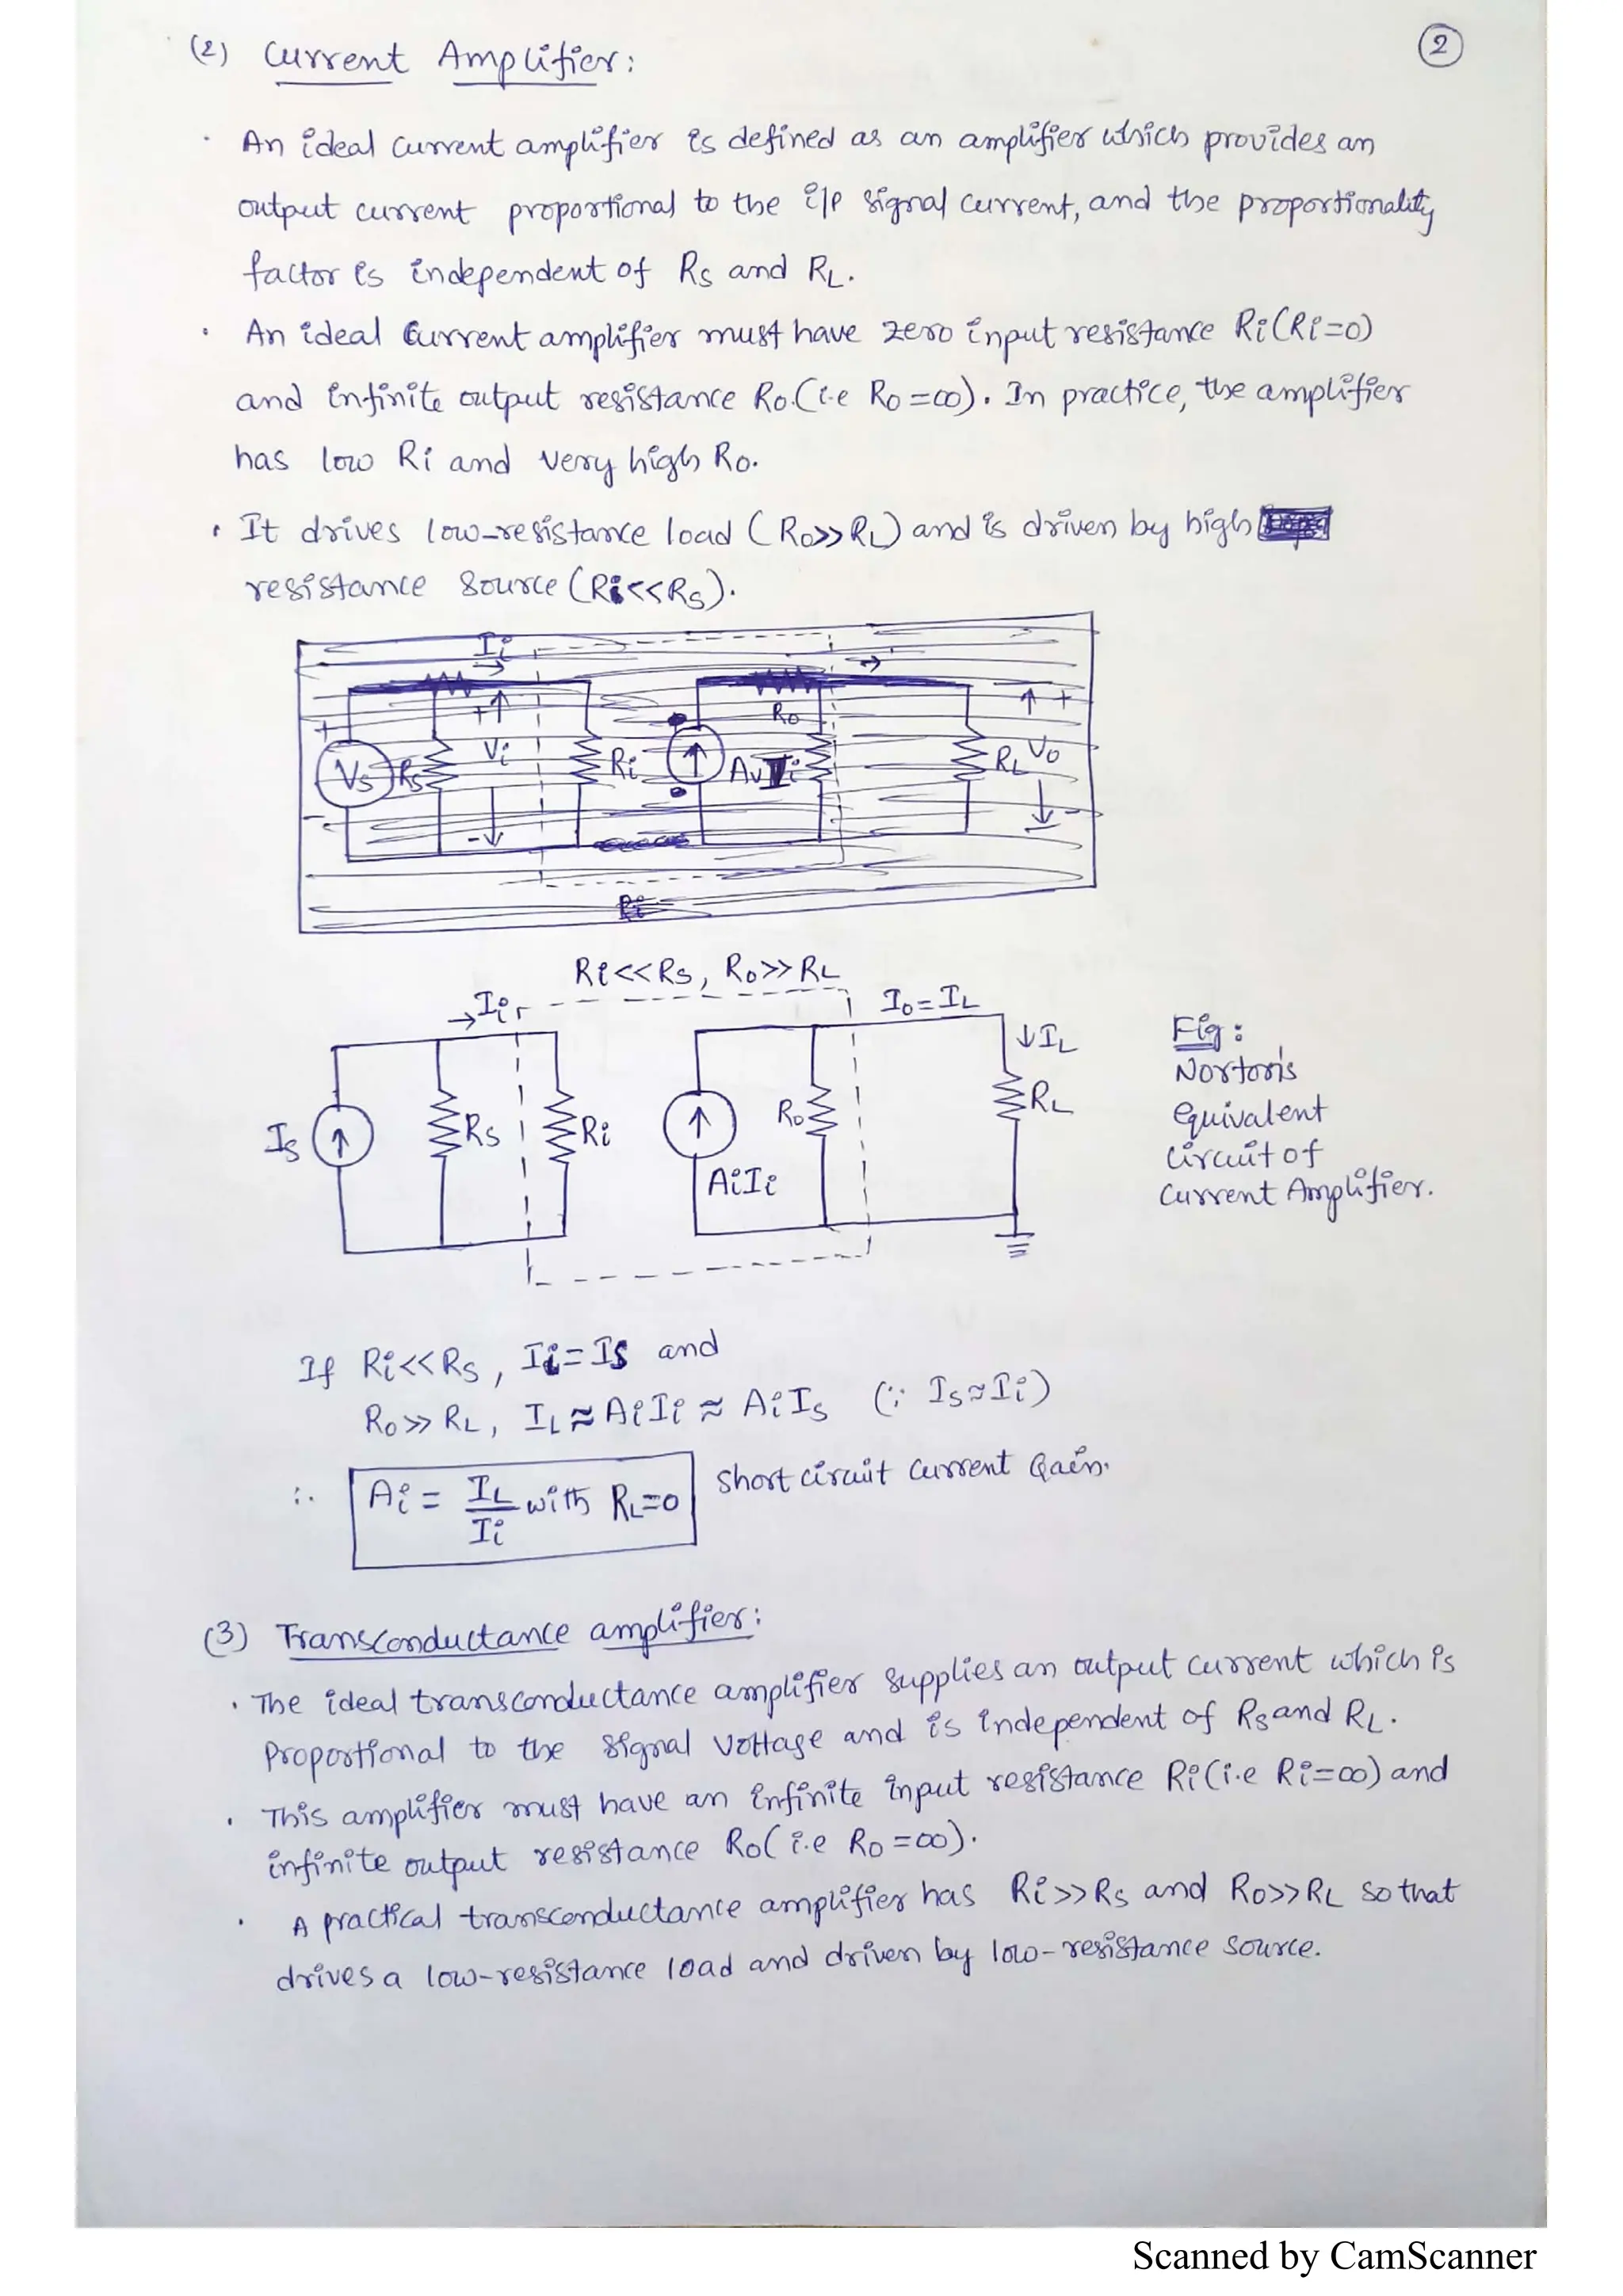 (2) Current Amplifier:
2
· An ideal current amplifier is defined as an amplifier which provides an
output current proportional to the i/p signal current, and the proportionality
factor is independent of RS and RL.
· An ideal current amplifier must have zero input resistance Ri (Ri=0)
and infinite output resistance Ro. (i.e Ro=∞). In practice, the amplifier
has low Ri and very high Ro.
· It drives low-resistance load (Ro>>RL) and is driven by high
resistance source (Ri<<RS).
Ii
+ Vs - Rs + Vi - Ri AvIi Ro RL + Vo -
Ri
Ri<<Rs, Ro>>RL
→Ii
Io=IL
↓IL
Is
Rs
Ri
AiIi
Ro
RL
Fig:
Norton's
equivalent
circuit of
current Amplifier.
If Ri<<Rs, Ii=Is and
Ro>>RL, IL≈AiIi≈AiIs (∵ Is≈Ii)
∴ Ai = IL/Ii with RL=0 short circuit current Gain.
(3) Transconductance amplifier:
· The ideal transconductance amplifier supplies an output current which is
proportional to the signal voltage and is independent of Rs and RL.
· This amplifier must have an infinite input resistance Ri (i.e Ri=∞) and
infinite output resistance Ro (i.e Ro=∞).
· A practical transconductance amplifier has Ri>>Rs and Ro>>RL so that
drives a low-resistance load and driven by low-resistance source.
Scanned by CamScanner